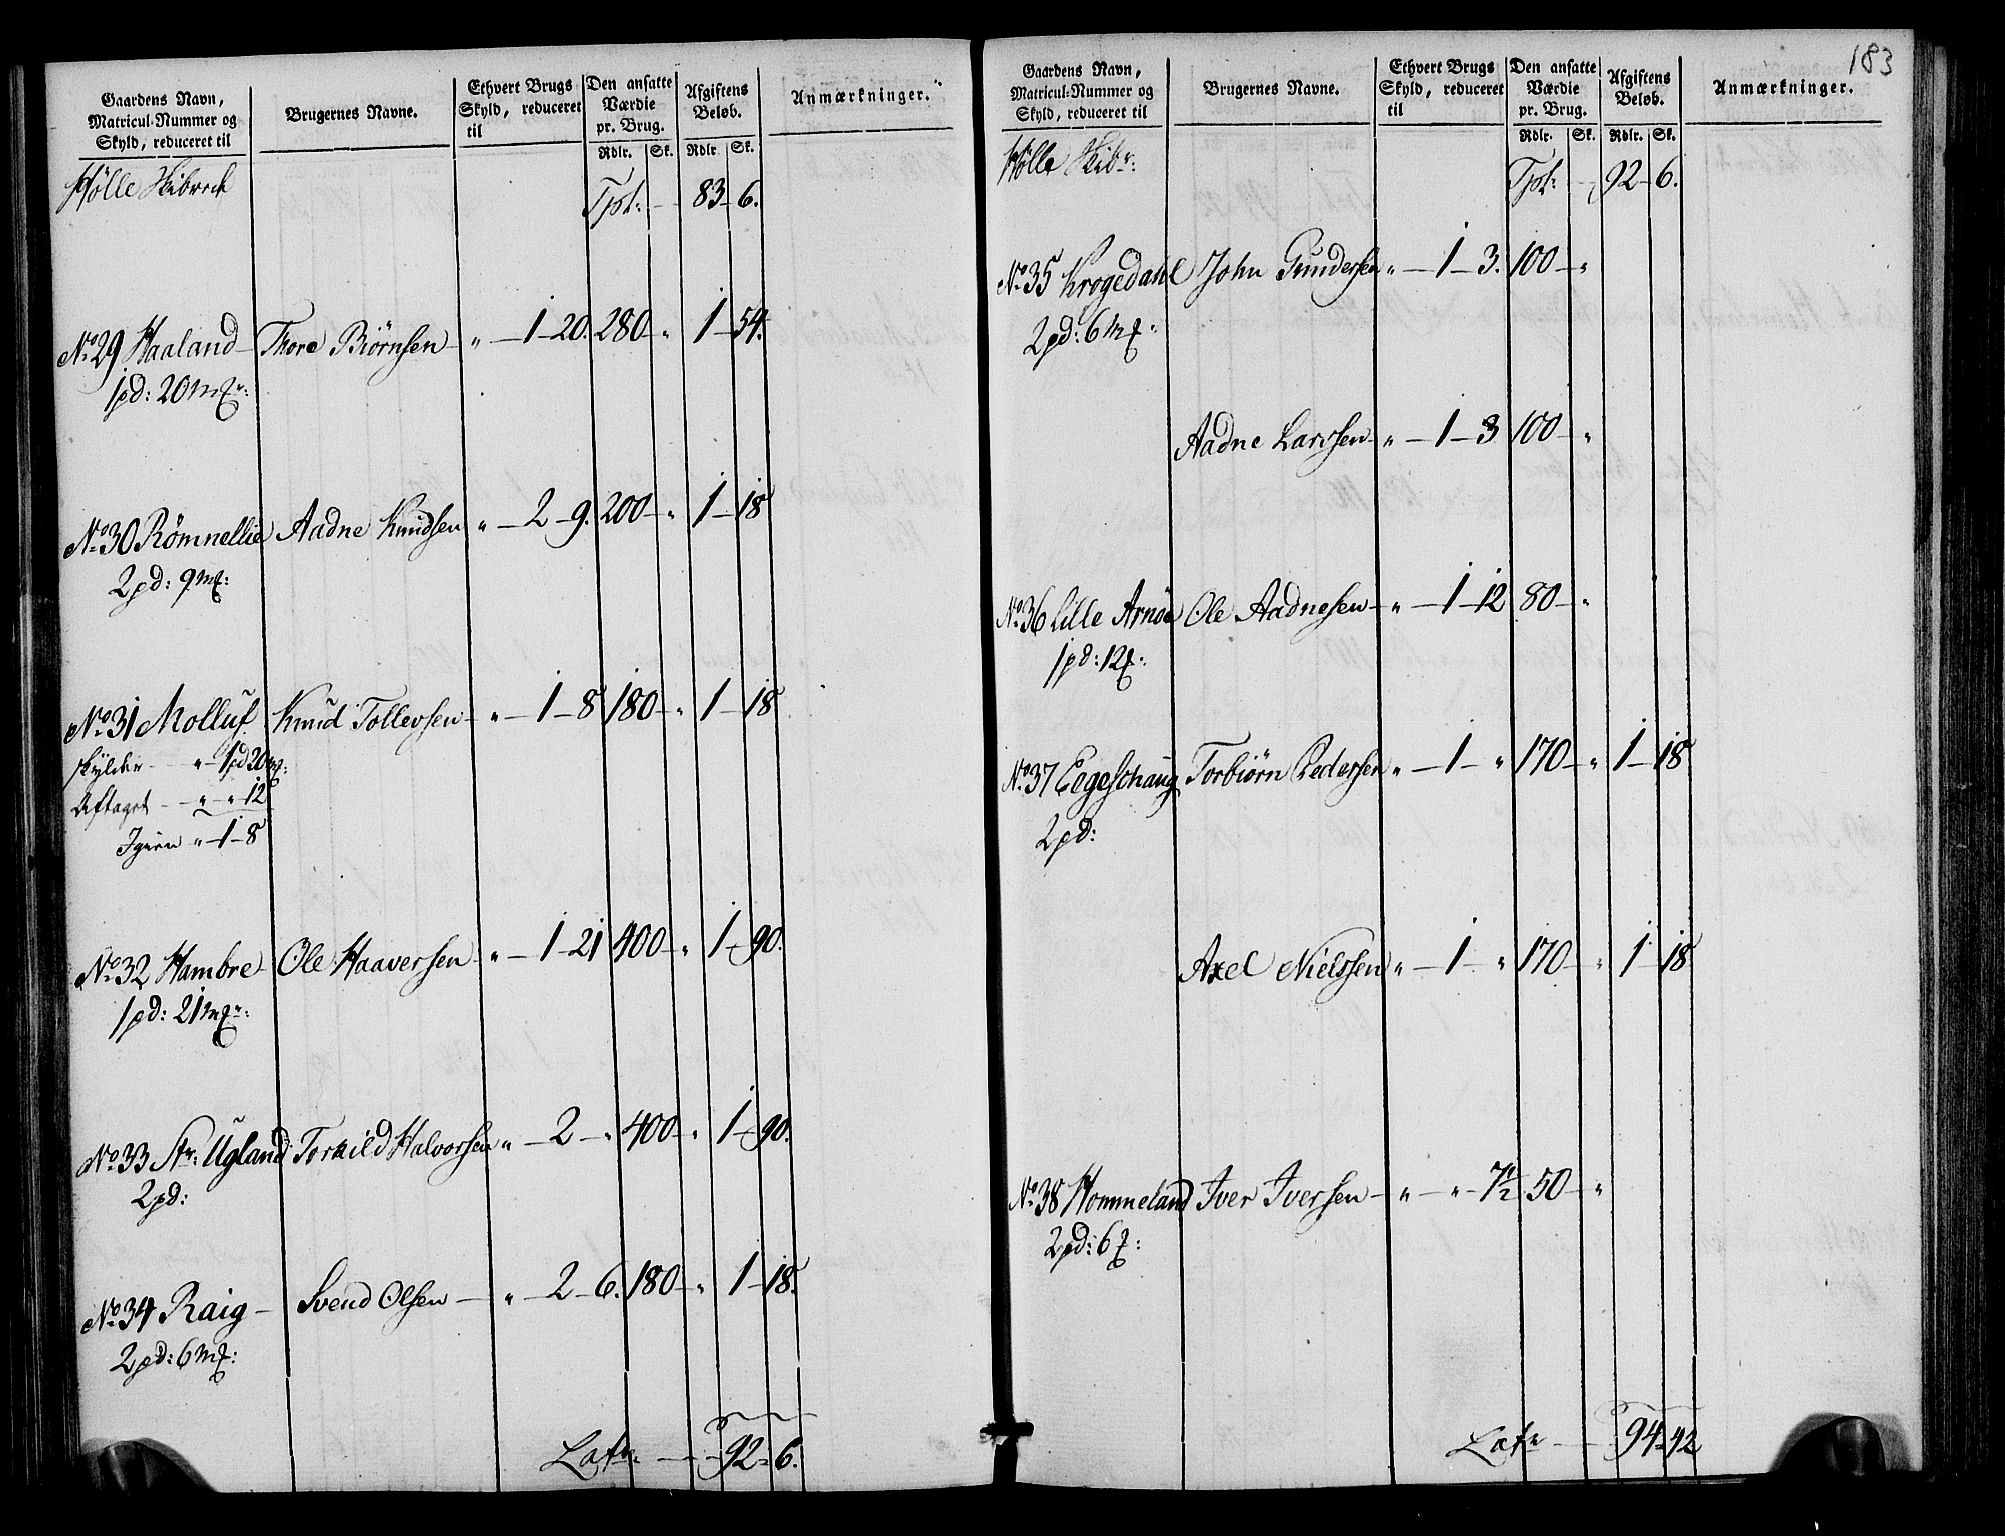 Gaardens Navn,
Matricul-Nummer og
Skyld, reduceret til
Brugernes Navne.
Ethvert Brugs
Skyld, reduceret
til
Den ansatte
Værdie
pr. Brug.
Rdlr. Sk.
Afgiftens
Beløb.
Rdlr Sk.
Anmærkninger.
Hølle Skibrede
Tpt: 83 - 6.
No 29 Haaland - Thore Biørnsen - " - 1 - 20. 280 - " 1 - 54.
1 pd: 20 mk:
No 30 Römnellie Aadne Knudsen " - 2 - 9. 200 - " 1 - 18
2 pd: 9 mk:
No 31 Molluf. Knud Tollevsen - " - 1 - 8 180 - " 1 - 18
skylder - " - 1 pd 20 mk:
Aftaget - " - " 12
Igien " - 1 - 8
No 32 Hambre - Ole Haaversen - " - 1 - 21 400 - " 1 - 90.
1 pd: 21 mk:
No 33 Str: Ugland Torkild Halvorsen " - 2 - " 400 - " 1 - 90.
2 pd:
No 34 Raig - Svend Olsen - " - 2 - 6. 180 - " 1 - 18.
2 pd: 6 mk:
Late: - 92 - 6.
183
Gaardens Navn,
Matricul-Nummer og
Skyld, reduceret til
Brugernes Navne.
Ethvert Brugs
Skyld, reduceret
til
Den ansatte
Værdie
pr. Brug.
Rdlr. Sk.
Afgiftens
Beløb.
Rdlr. Sk.
Anmærkninger.
Hølle Skibr:
Tpt: - 92 - 6.
No 35 Krogedahl John Gundersen " - 1 - 3. 100 - "
2 pd: 6 mk:
Aadne Larssen - " - 1 - 3 100 - "
No 36 Lille Arnøe Ole Aadnesen - " - 1 - 12 80 - "
1 pd: 12 :
No 37 Eegeschaug Torbiörn Pedersen " - 1 - " 170 - " 1 - 18
2 pd:
Axel Nielssen " - 1 - " 170 - " 1 - 18
No 38 Hommeland Iver Iversen - " - " - 7½ 50 - "
2 pd: 6 :
Late - 94 - 42